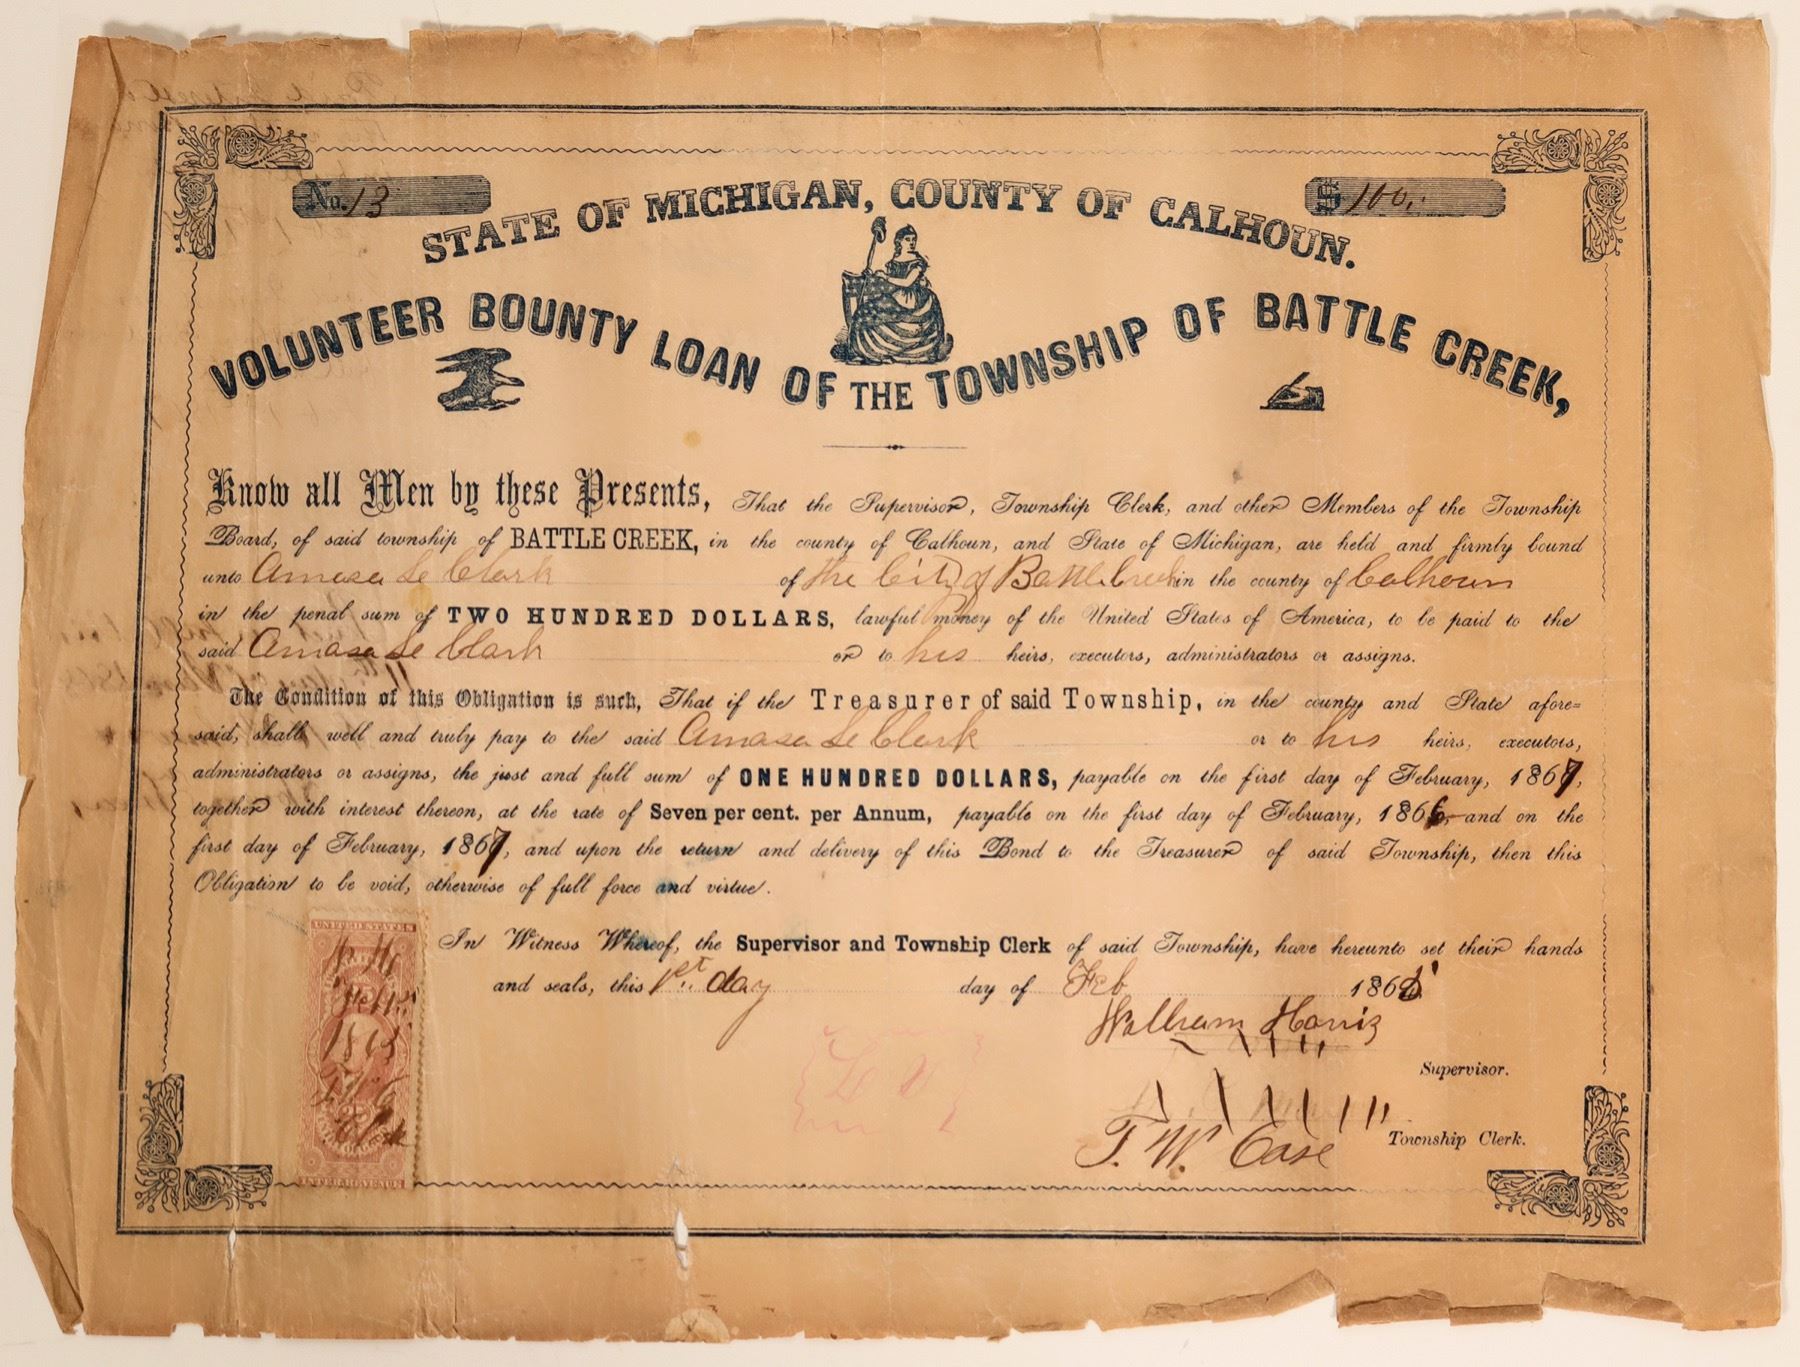 No. 13
$ 100.
STATE OF MICHIGAN, COUNTY OF CALHOUN.
VOLUNTEER BOUNTY LOAN OF THE TOWNSHIP OF BATTLE CREEK,
Know all Men by these Presents, That the Supervisor, Township Clerk, and other Members of the Township
Board, of said township of BATTLE CREEK, in the county of Calhoun, and State of Michigan, are held and firmly bound
unto Amasa Le Clark of the City of Battle Creek in the county of Calhoun
in the penal sum of TWO HUNDRED DOLLARS, lawful money of the United States of America, to be paid to the
said Amasa Le Clark or to his heirs, executors, administrators or assigns.
The Condition of this Obligation is such, That if the Treasurer of said Township, in the county and State afore=
said, shall well and truly pay to the said Amasa Le Clark or to his heirs, executors,
administrators or assigns, the just and full sum of ONE HUNDRED DOLLARS, payable on the first day of February, 1867,
together with interest thereon, at the rate of Seven per cent. per Annum, payable on the first day of February, 1866, and on the
first day of February, 1867, and upon the return and delivery of this Bond to the Treasurer of said Township, then this
Obligation to be void, otherwise of full force and virtue.
In Witness Whereof, the Supervisor and Township Clerk of said Township, have hereunto set their hands
and seals, this 1st. day day of Feb 1865
William Harris
Supervisor.
T. W. Case
Township Clerk.
UNITED STATES
W. H.
Feb 1st
1865
INTER. REVENUE
L S